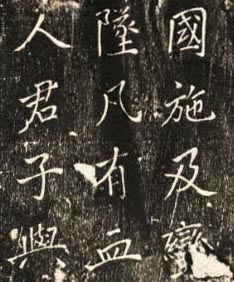 國施及蠻
墜凡有血
人君子與